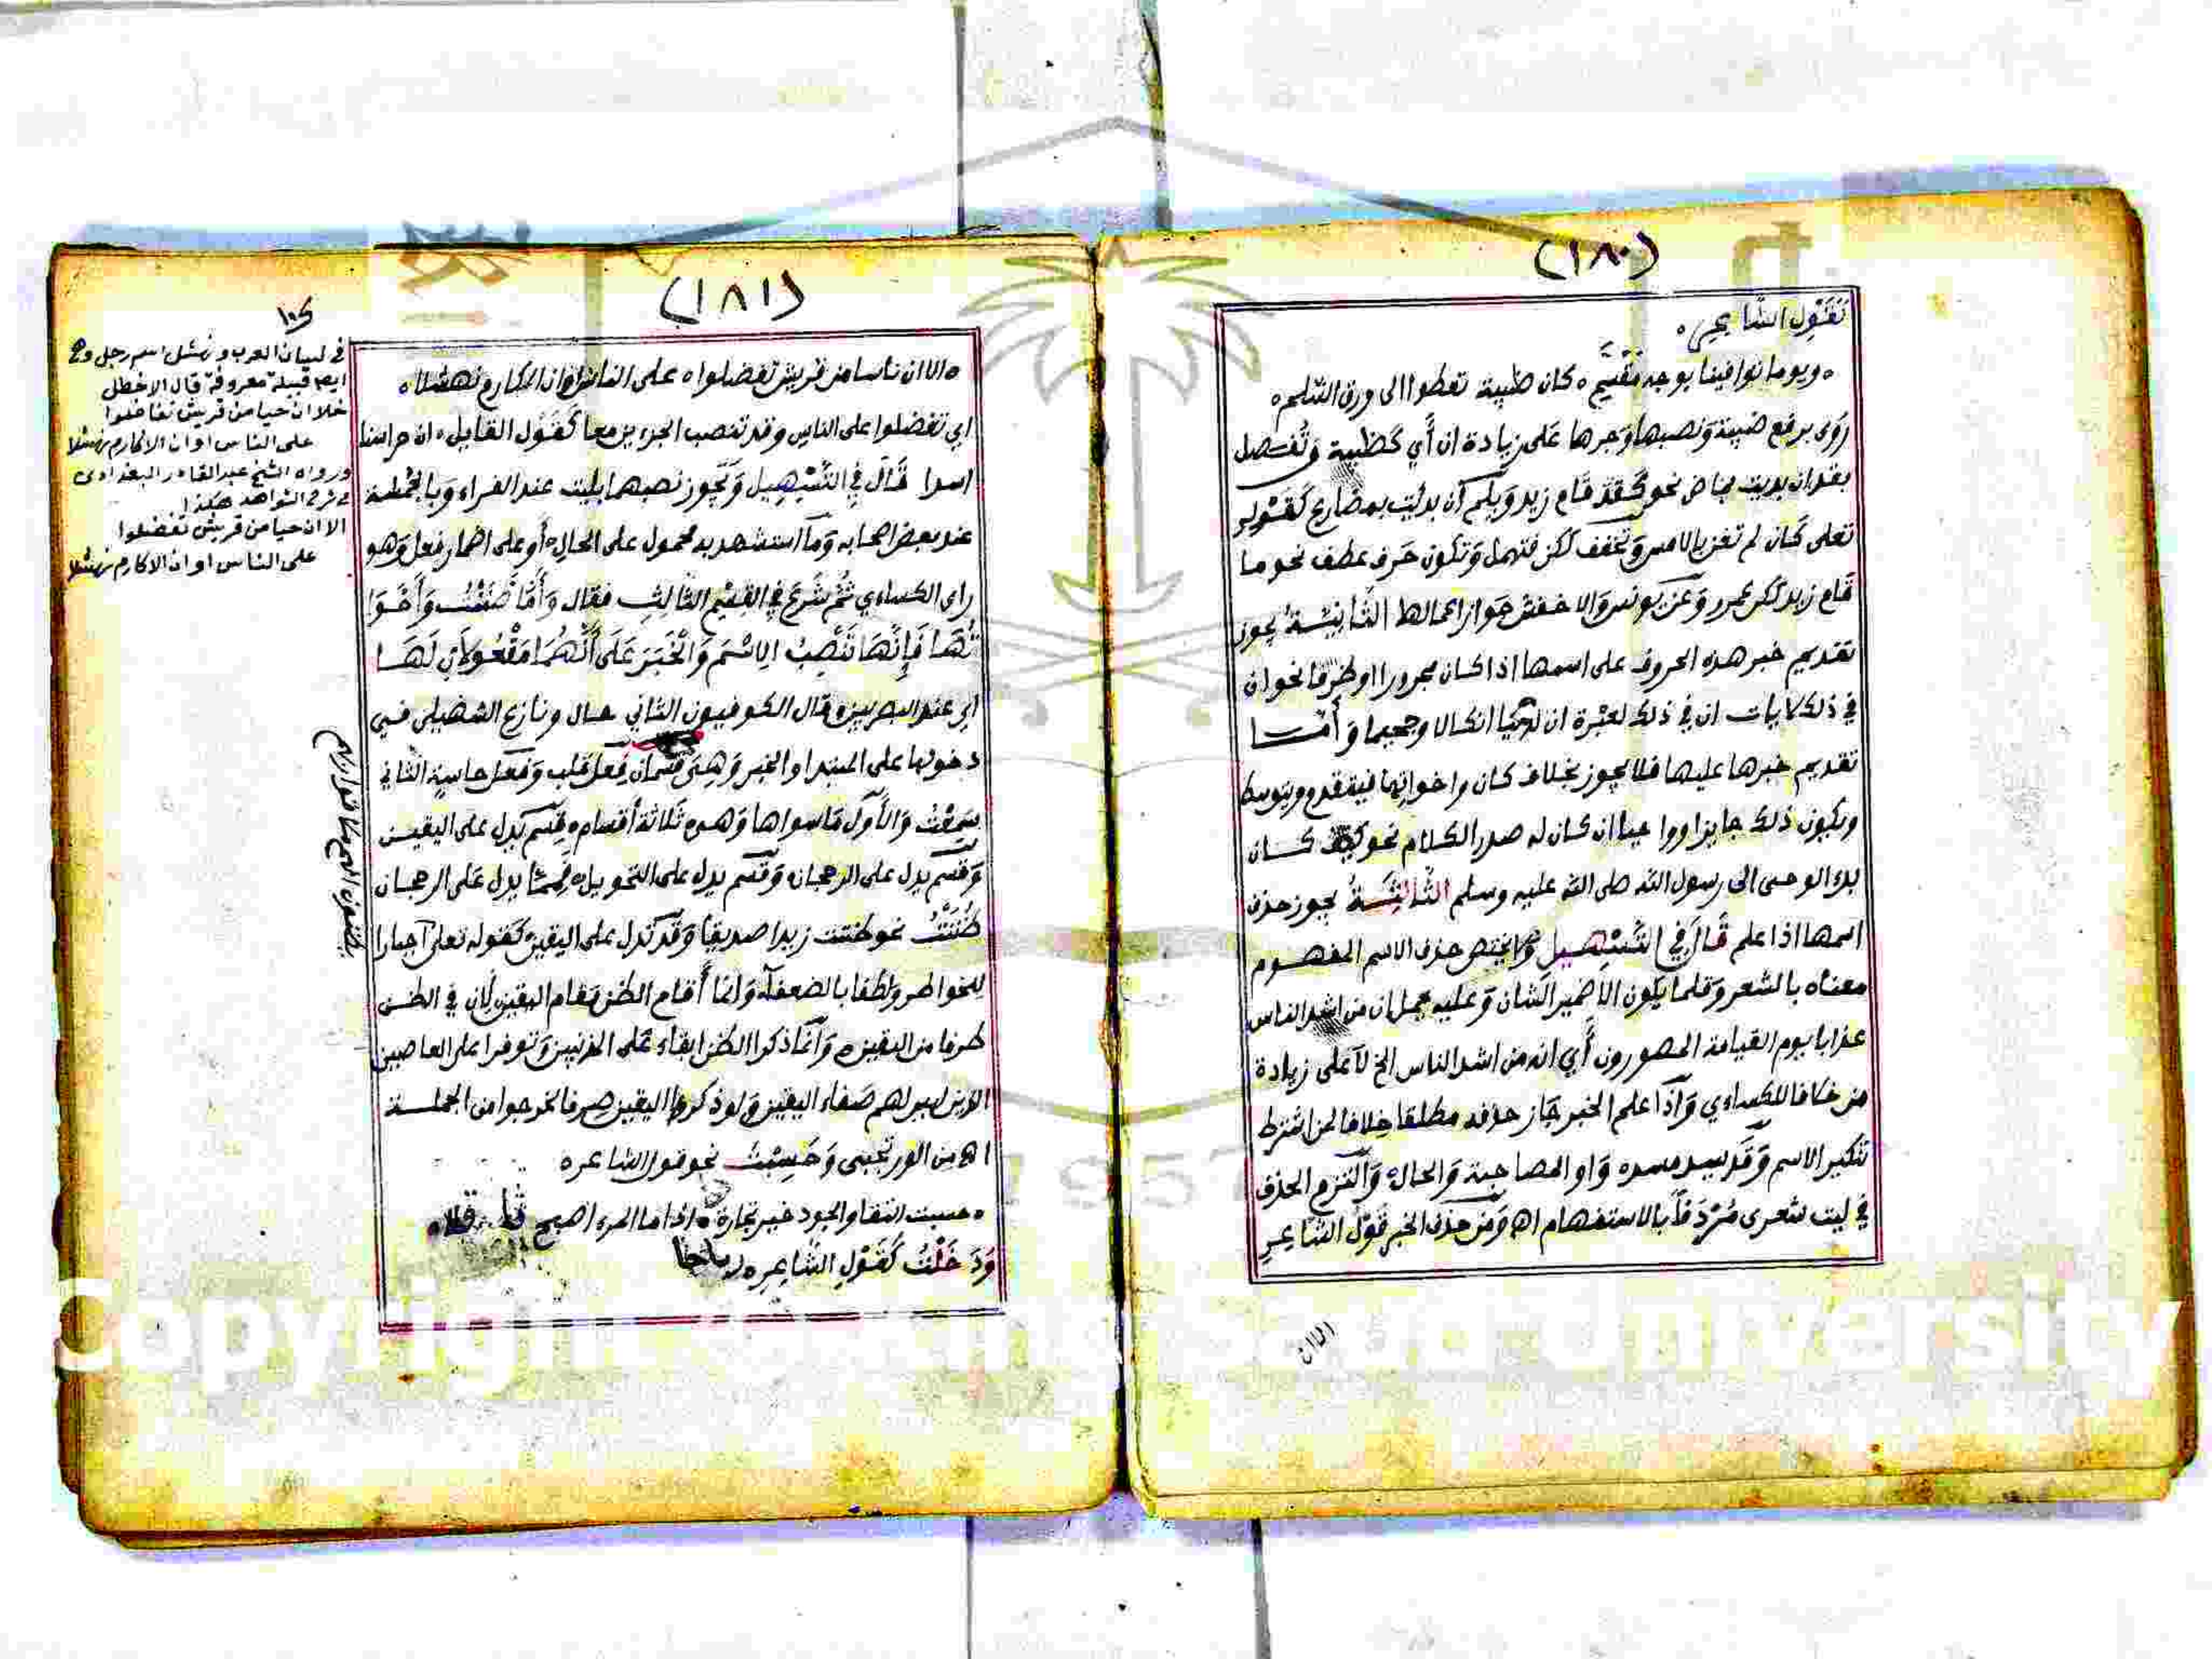 (١٨٠)
كَقَوْلِ الشَّاعِرِ ه
ه ويوما توافينا بوجه مُقَسَّمٍ ه كان ظبية تعطوا الى ورق السلم ه
رَوَى برفع ضبية وَنصبها وَجرها عَلى زيادة ان أَي كَظبية وَتُفصل
بقد ان بديت بماض نحو كَان قَد قَام زيد وَبلم ان بدئت بمضارع كَقَوْلِهِ
تعلى كَان لم تغن بالامس وَتخفف لكن فتهمل وَتكون حَرف عطف نحو ما
قَام زيد لكن عمرو وَعَن يونس وَالاخفش جَواز اعمالها الثَّانِيَةُ يجوز
تقديم خبر هذه الحروف على اسمها اذا كان مجرورا او ظرفا نحو ان
في ذلك لايات ان في ذلك لعبرة ان لدينا انكالا وجحيما وَأَمَّا
تقديم خبرها عليها فلا يجوز بخلاف كان واخواتها فيتقدم ويتوسط
ويكون ذلك جايزا وواجبا ان كان له صدر الكلام نحو كيف كان
بدء الوحى الى رسول الله صلى الله عليه وسلم الثَّالِثَةُ يجوز حذف
اسمها اذا علم قَالَ فِي التَّسْهِيلِ وَلا يختص حذف الاسم المفهوم
معناه بالشعر وَقلما يكون الا ضمير الشان وَعليه يحمل ان من اشد الناس
عذابا يوم القيامة المصورون أَي انه من اشد الناس الخ لَا على زيادة
من خلافا للكساءي وَاذَا علم الخبر جَاز حذفه مطلقا خِلافا لمن اشترط
تنكير الاسم وَقَد يسد مسده وَاو المصاحبة وَالحال وَالتزم الحذف
في ليت شعرى مُرْدَفًا بالاستفهام اه وَمن حذف الخبر قَوْل الشَّاعِرِ
الا ان
(١٨١)
ه الا ان ناسا من قريش تفضلوا ه على الناس او ان الاكارم نهشلا ه
اي تفضلوا على الناس وقد تنصب الجزءين معا كَقَوْل القايل ه ان حراسنا
اسدا قَالَ فِي التَّسْهِيل وَيَجُوز نصبهما بليت عند الفراء وَبالخمسة
عند بعض اصحابه وَمَا استشهد به محمول على الحال أَو على اضمار فعل وَهو
راى الكساءي ثُمَّ شَرَعَ فِي القِسْمِ الثَّالِثِ فقال وَأَمَّا ظَنَنْتُ وَأَخَوَا
تُهَا فَإِنَّهَا تَنْصِبُ الِاسْمَ وَالْخَبَرَ عَلَى أَنَّهُمَا مَفْعُولَانِ لَهَا
اي عند البصريين ه قال الكوفيون الثاني حال ونازع السهيلي في
دخولها على المبتدا والخبر وَهِيَ قسْمَان فِعل قَلب وَفعل حاسة الثاني
سَمِعْتُ وَالأَوَّل مَا سواها وَهو ثَلَاثة أَقسام ه قِسْم يَدل عَلى اليقين
وَقسْم يدل على الرجحان وَقسْم يدل على التحويل ه فَمِمَّا يدل عَلى الرجحان
ظَنَنْتُ نحو ظننت زيدا صديقًا وَقَد تدل على اليقين كَقوله تعلى
للخواطر وَلطفا بالضعفآء وَانما أَقام الظن مَقام اليقين لِأَن في الظن
طرفا من اليقين ه وَانما ذكر الظن ابقاء عَلى المذنبين وَتوفرا على العاصين
الذين ليس لهم صَفاء اليقين وَلو ذكر اليقين صرفا لخرجوا من الجملة
اه من الورتجبى وَحَسِبْتُ نحو قول الشاعر ه
ه حسبت التقا والجود خير تجارة ه اذا ما المرء اصبح
وَدَخَلْتُ كَقَوْلِ الشَّاعِرِ ه
في لسان العرب ونهشل اسم رجل وهي
ايضا قبيلة معروفة قال الاخطل
خلا ان حيا من قريش تفاضلوا
على الناس او ان الاكارم نهشلا
ورواه الشيخ عبد القادر البغدادى
في شرح الشواهد هكذا
الا ان حيا من قريش تفضلوا
على الناس او ان الاكارم نهشلا
Copyright © King Saud University
1957